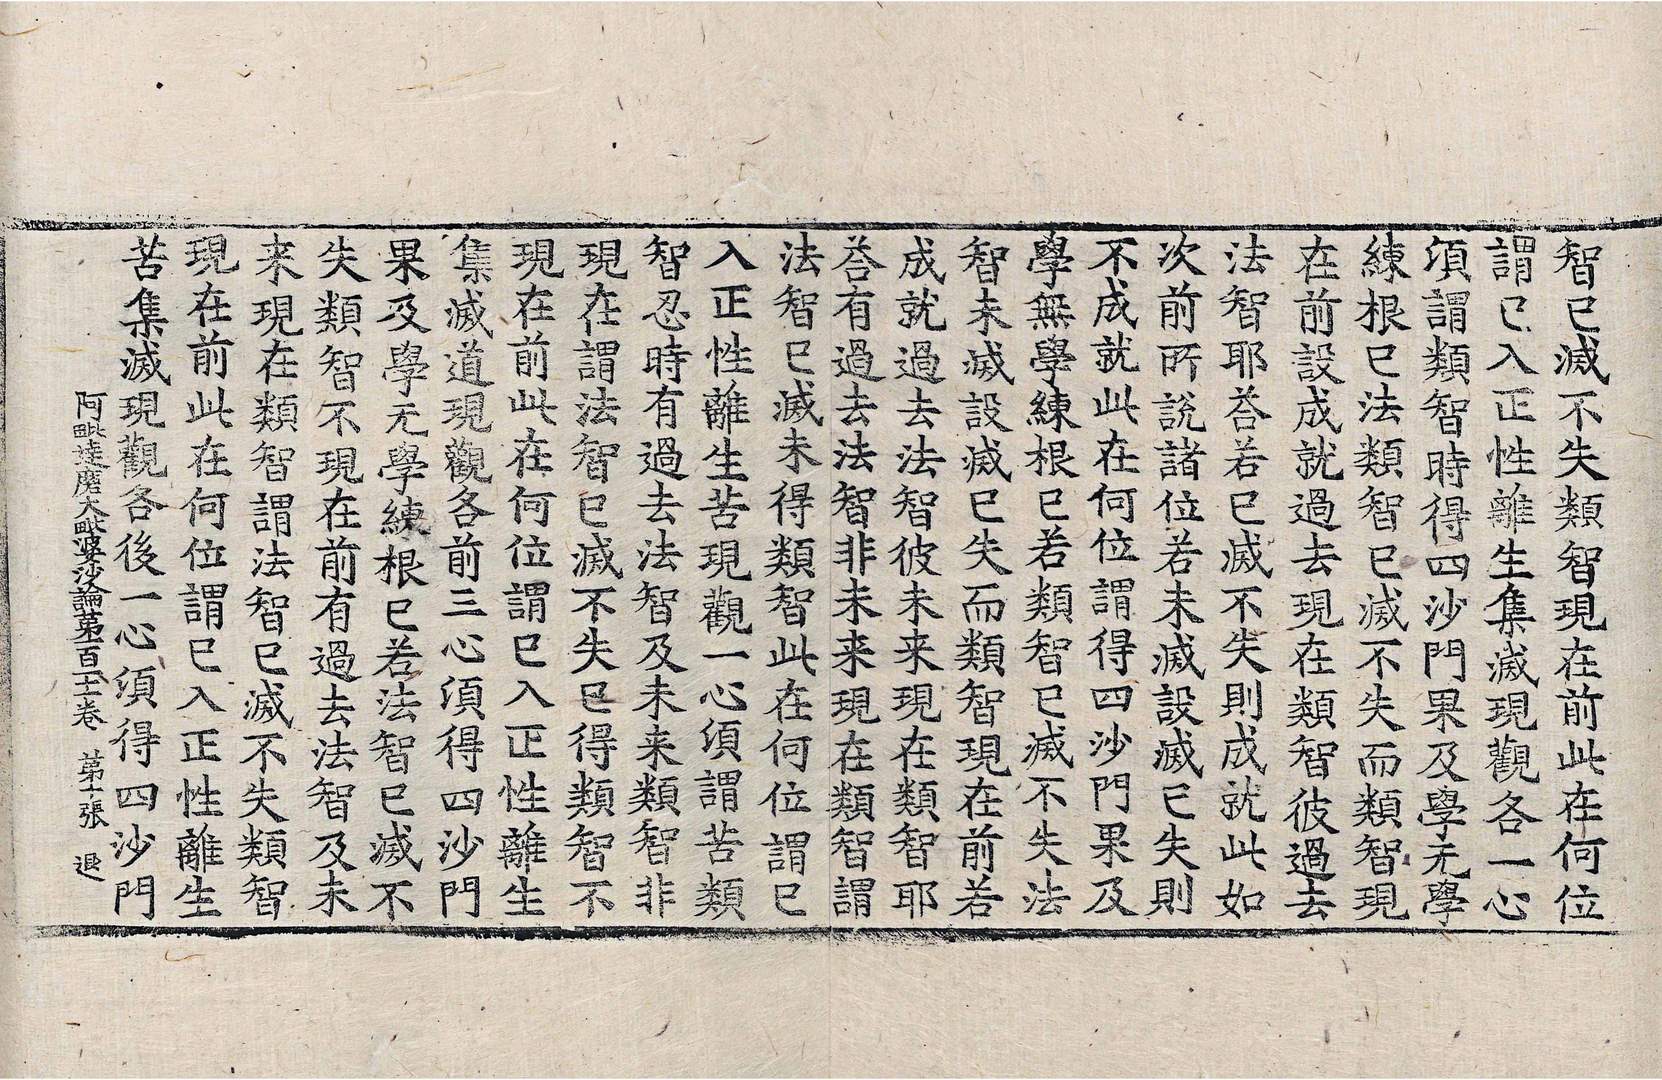 智已滅不失類智現在前此在何位
謂已入正性離生集滅現觀各一心
須謂類智時得四沙門果及學无學
練根已法類智已滅不失而類智現
在前設成就過去現在類智彼過去
法智耶荅若已滅不失則成就此如
次前所說諸位若未滅設滅已失則
不成就此在何位謂得四沙門果及
學無學練根已若類智已滅不失法
智未滅設滅已失而類智現在前若
成就過去法智彼未来現在類智耶
荅有過去法智非未来現在類智謂
法智已滅未得類智此在何位謂已
入正性離生苦現觀一心須謂苦類
智忍時有過去法智及未来類智非
現在謂法智已滅不失已得類智不
現在前此在何位謂已入正性離生
集滅道現觀各前三心須得四沙門
果及學无學練根已若法智已滅不
失類智不現在前有過去法智及未
来現在類智謂法智已滅不失類智
現在前此在何位謂已入正性離生
苦集滅現觀各後一心須得四沙門
阿毗達磨大毗婆沙論第一百
卷 第十張 退